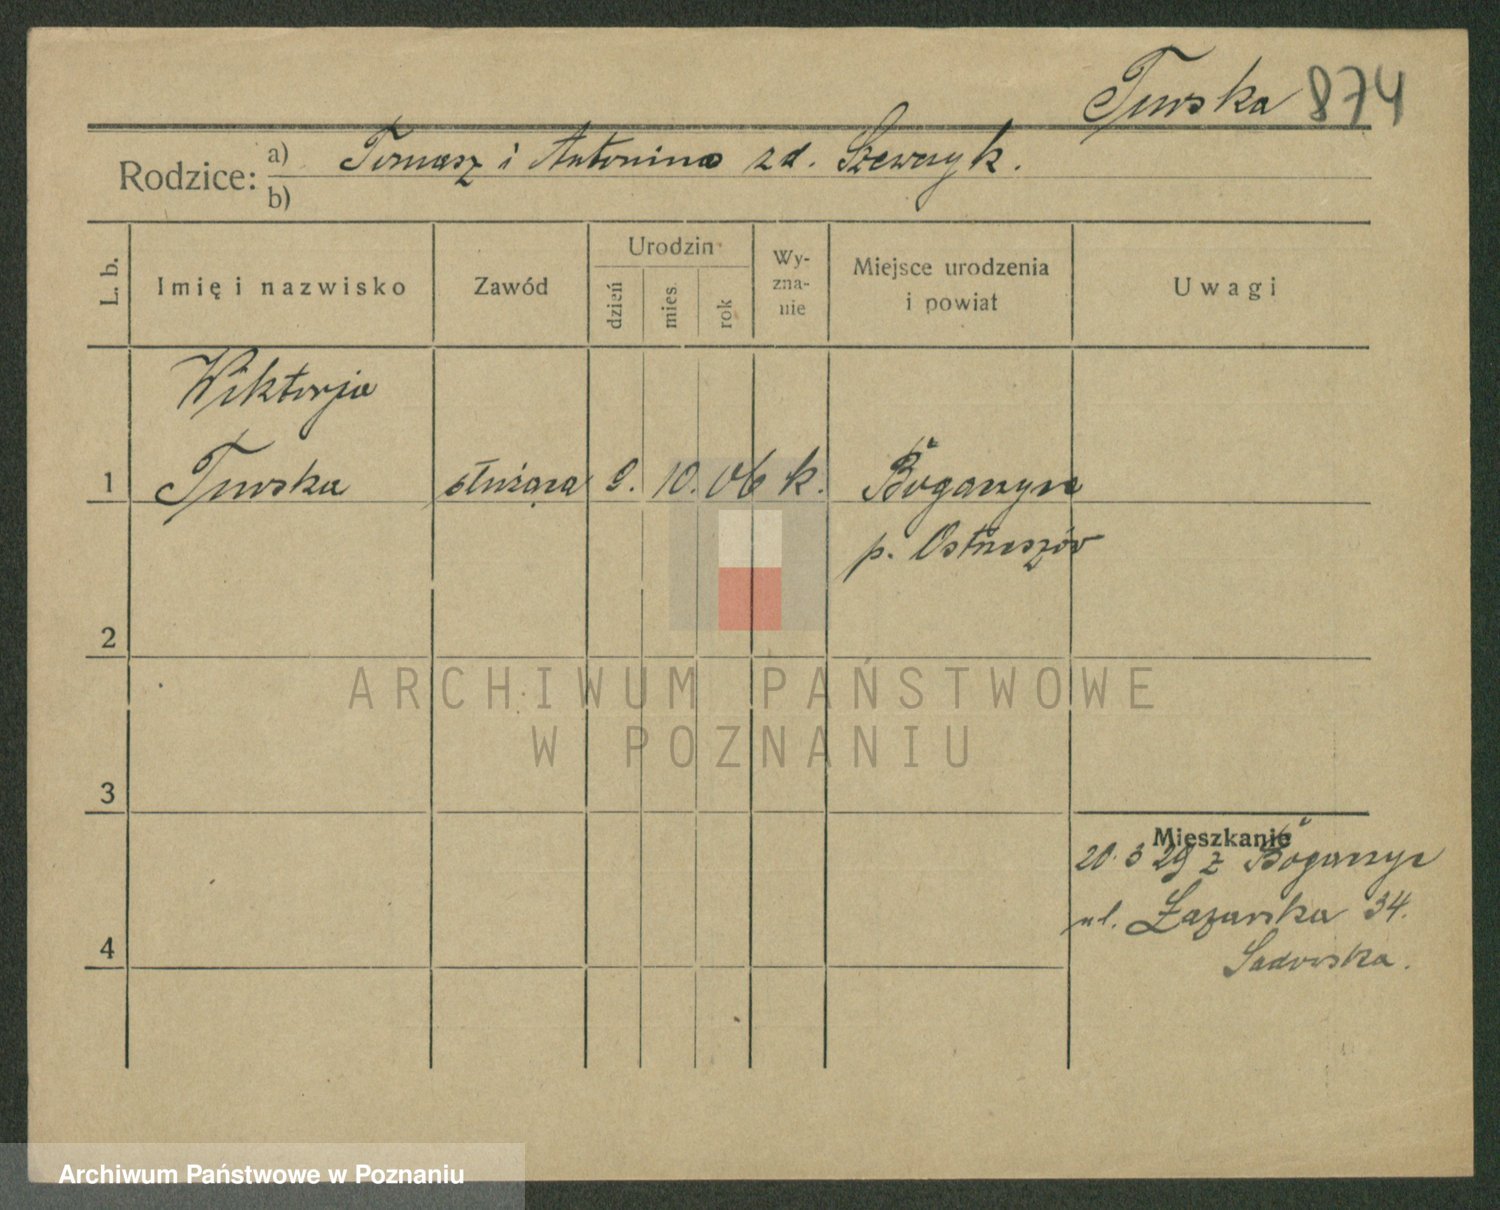 Turska 874
Rodzice: a) Tomasz i Antonina zd. Szewczyk.
b)
L. b. Imię i nazwisko Zawód Urodzin dzień mies. rok Wy-zna-nie Miejsce urodzenia i powiat Uwagi
Wiktorja
1 Turska służąca 9. 10. 06 k.
p. Ostrzeszów
2
ARCHIWUM PAŃSTWOWE
W POZNANIU
3
Mieszkanie
20. 3 29 z
ul. Łazarska 34.
4
Sadowska.
Archiwum Państwowe w Poznaniu